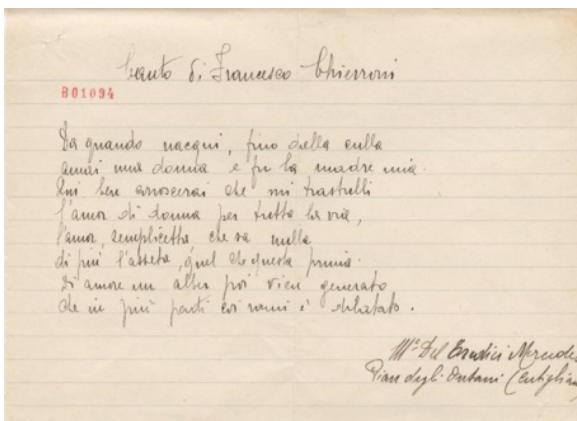 Canto di Francesco Chierroni
B01094
Da quando nacqui, fino della culla
amai una donna e fu la madre mia.
Qui ben conoscerai che mi trastulli
l'amor di donna per tutta la via,
l'amor, semplicetta che sa nulla
di più l'asseta, quel che questa pria.
Di amore un altro poi vien generato
che in più parti coi rami è dilatato.
Mª Del Mercede
Pian degli Ontani (Cutigliano